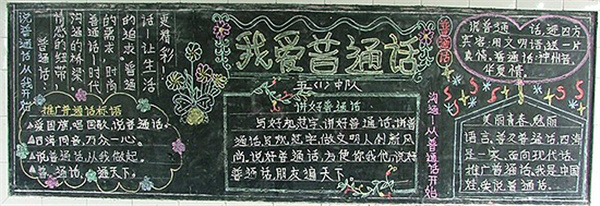 我爱普通话
五(1)中队
讲好普通话
写好规范字,讲好普通话,讲普
通话,写规范字,做文明人,创新风
尚,说好普通话,方便你我他,说好
普通话,朋友遍天下。
更精彩!
话—让生活
的追求。普通
的需求,时尚
普通话—时代
沟通的桥梁
情感的纽带,
普通话:
说普通话从我开始
推广普通话标语
爱国旗,唱国歌,说普通话。
四海同音,万众一心。
说普通话,从我做起。
普通话,通天下。
普通话
沟通—从普通话开始
说普通一话,迎四方
宾客;用文明语,送一片
真情。普通话:神州音,
华夏情。
美丽青春,魅丽
语言,普及普通话,四海
是一家。面向现代话,
推广普通话。我是中国
娃,爱说普通话。